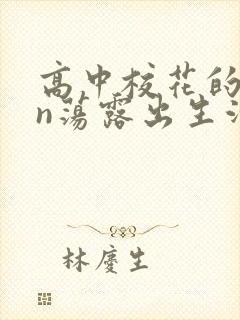 高中校花的
n荡露出生活
林庆生